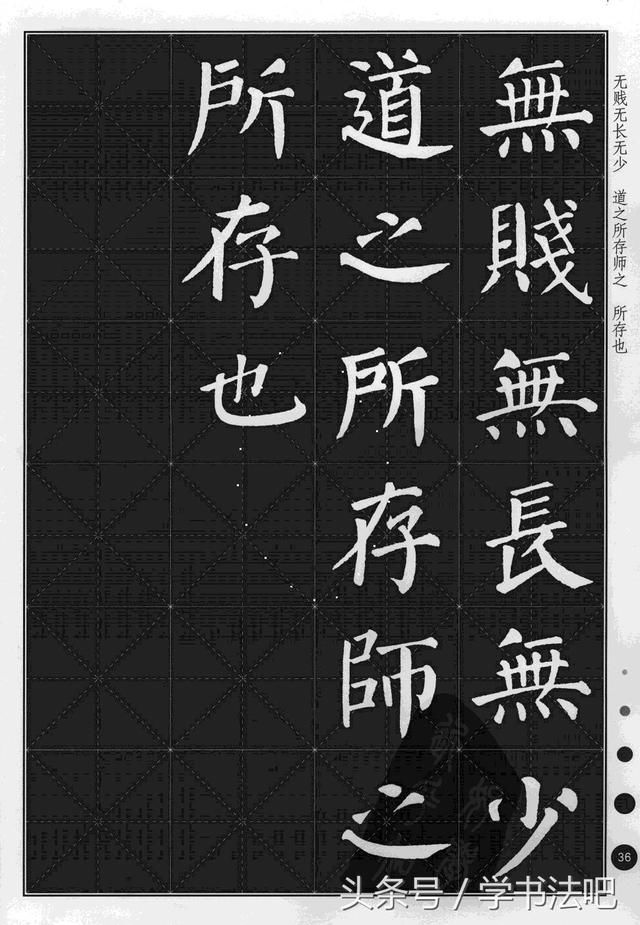 無賤無長無少
道之所存師之
所存也
无贱无长无少 道之所存师之 所存也
36
头条号 / 学书法吧